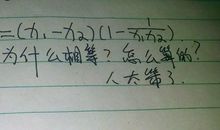 =(x₁-x₂)(1-\frac{1}{x₁x₂})
为什么相等？怎么算的？